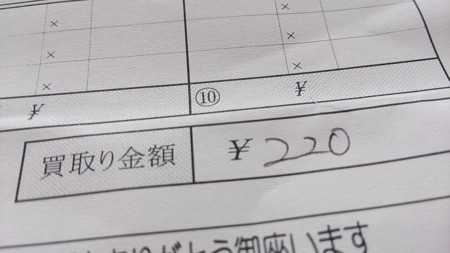 × ×
× ×
× ×
¥ ⑩ ¥
買取り金額 ¥220
ありがとう御座います